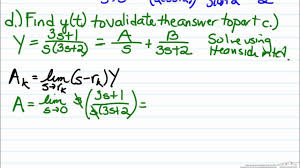 d.) Find y(t) to validate the answer to part c.)
Y = 3s+1 / s(3s+2) = A/s + B/3s+2 Solve using
A_k = lim s→r_k (s-r_k) Y
A = lim s→0 s (3s+1 / s(3s+2)) =